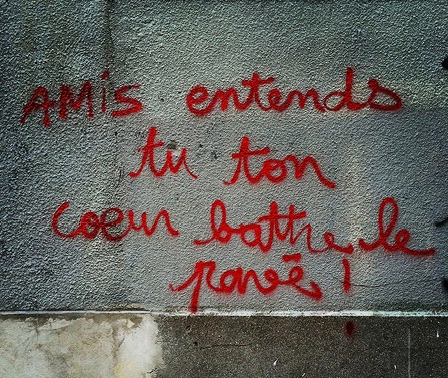 AMiS entends
tu ton
coeur battre le
pavé !